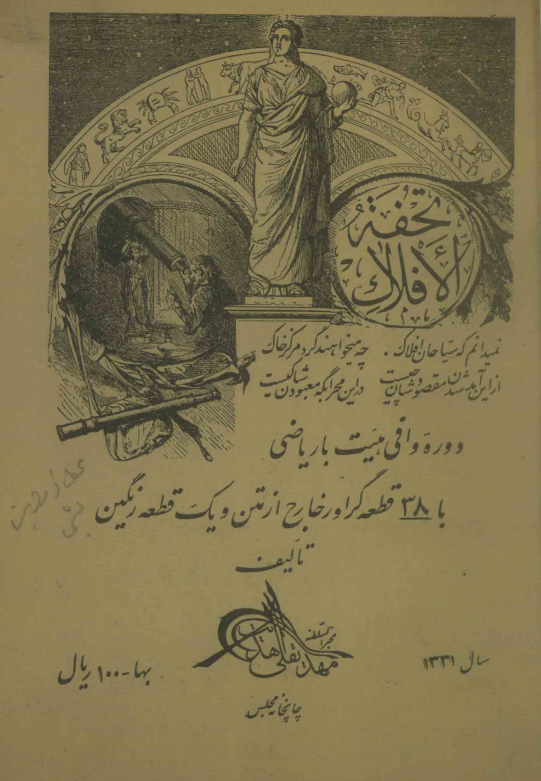 تحفة
الأفلاك
نمیدانم که سیاحان افلاک . چه میخواهند گرد مرکز خاک
ازین آمد شدن مقصودشان چیست درین محرابگه معبودشان کیست
دوره وافی هیئت با ریاضی
با ۳۸ قطعه گراور خارج از متن و یک قطعه رنگین
تألیف
مخبرالسلطنه
مهدیقلی هدایت
سال ۱۳۳۱
بها - ۱۰۰ ریال
چاپخانه مجلس